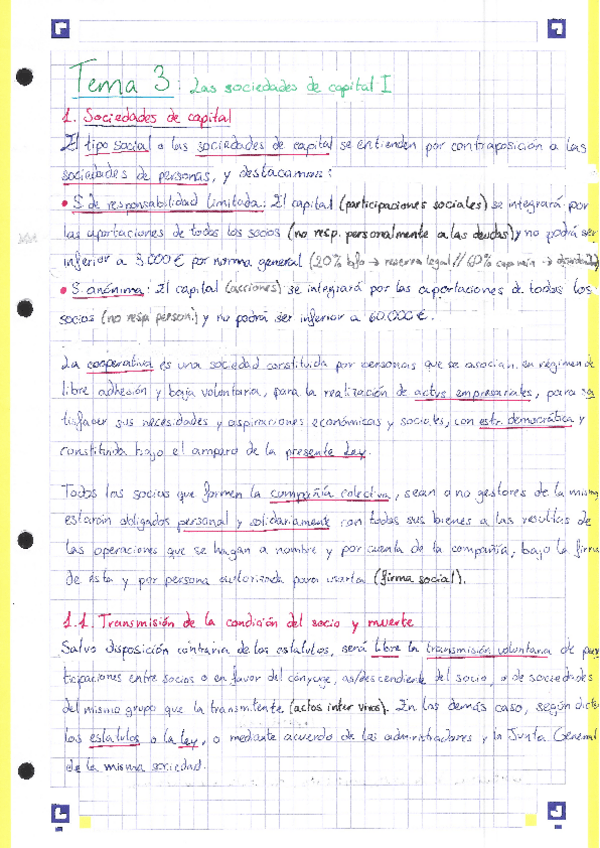 Tema 3: Las sociedades de capital I
1. Sociedades de capital
El tipo social o las sociedades de capital se entienden por contraposición a las
sociedades de personas, y destacamos:
• S. de responsabilidad limitada: El capital (participaciones sociales) se integrará por
las aportaciones de todos los socios (no resp. personalmente a las deudas) y no podrá ser
inferior a 3.000€ por norma general (20% bfo → reserva legal // 60% cap min →
• S. anónima: El capital (acciones) se integrará por las aportaciones de todos los
socios (no resp. person.) y no podrá ser inferior a 60.000€.
La cooperativa es una sociedad constituida por personas que se asocian, en régimen de
libre adhesión y baja voluntaria, para la realización de actvs empresariales, para sa
tisfacer sus necesidades y aspiraciones económicas y sociales, con estr. democrática y
constituida bajo el amparo de la presente Ley.
Todos los socios que formen la compañía colectiva, sean o no gestores de la misma
estarán obligados personal y solidariamente con todos sus bienes a las resultas de
las operaciones que se hagan a nombre y por cuenta de la compañía, bajo la firma
de ésta y por persona autorizada para usarla (firma social).
1.1. Transmisión de la condición del socio y muerte
Salvo disposición contraria de los estatutos, será libre la transmisión voluntaria de par
ticipaciones entre socios o en favor del cónyuge, as/descendiente del socio, o de sociedades
del mismo grupo que la transmitente (actos inter vivos). En los demás caso, según dicten
los estatutos o la ley, o mediante acuerdo de los administradores y la Junta General
de la misma sociedad.